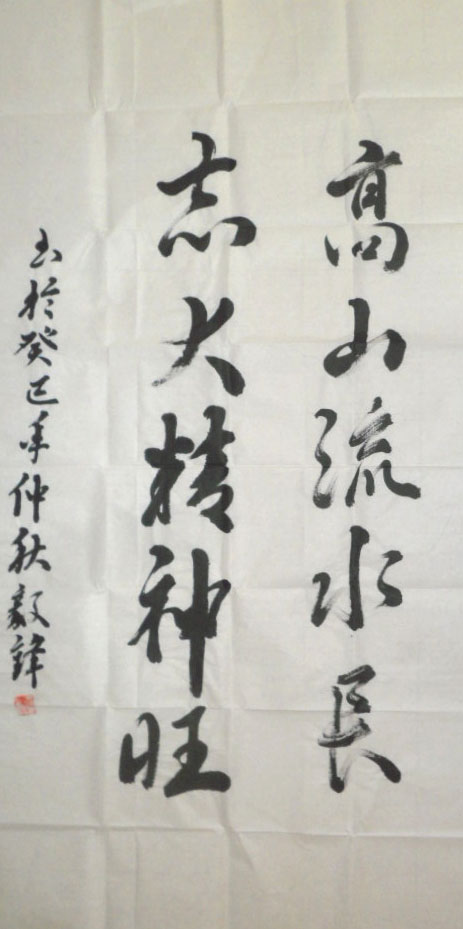 高山流水長
志大精神旺
书於癸巳年仲秋毅鋒